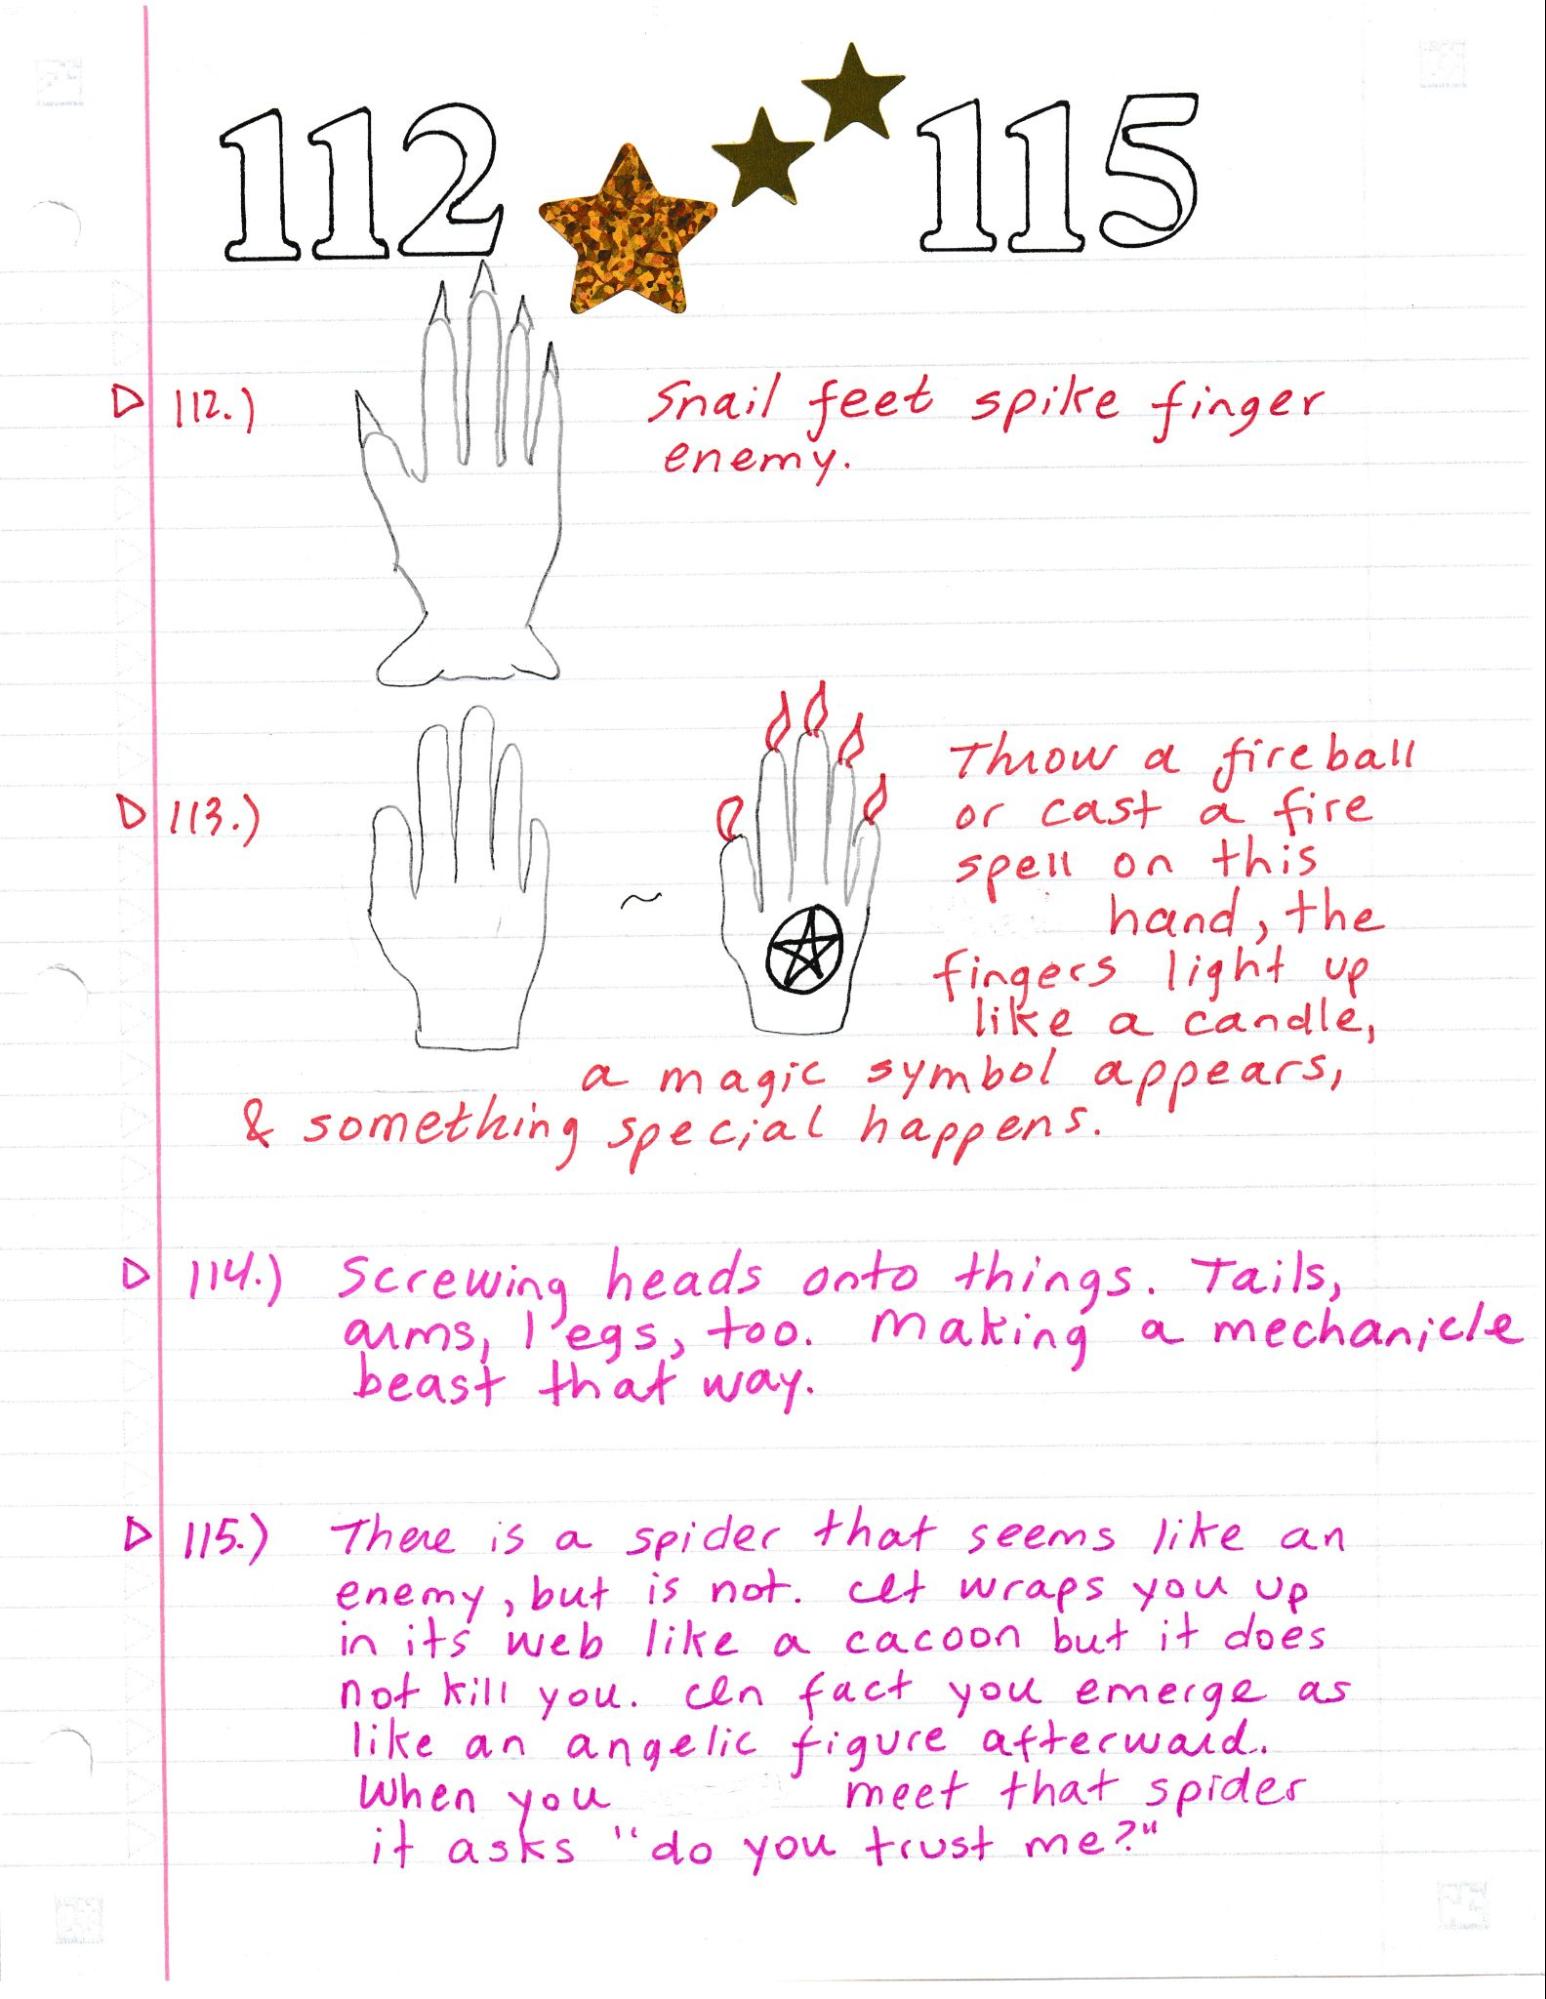 112 115
112.) Snail feet spike finger
enemy.
113.) ~ Throw a fireball
or cast a fire
spell on this
hand, the
fingers light up
like a candle,
a magic symbol appears,
& something special happens.
114.) Screwing heads onto things. Tails,
arms, legs, too. Making a mechanicle
beast that way.
115.) There is a spider that seems like an
enemy, but is not. It wraps you up
in its web like a cacoon but it does
not kill you. In fact you emerge as
like an angelic figure afterward.
When you meet that spider
it asks "do you trust me?"